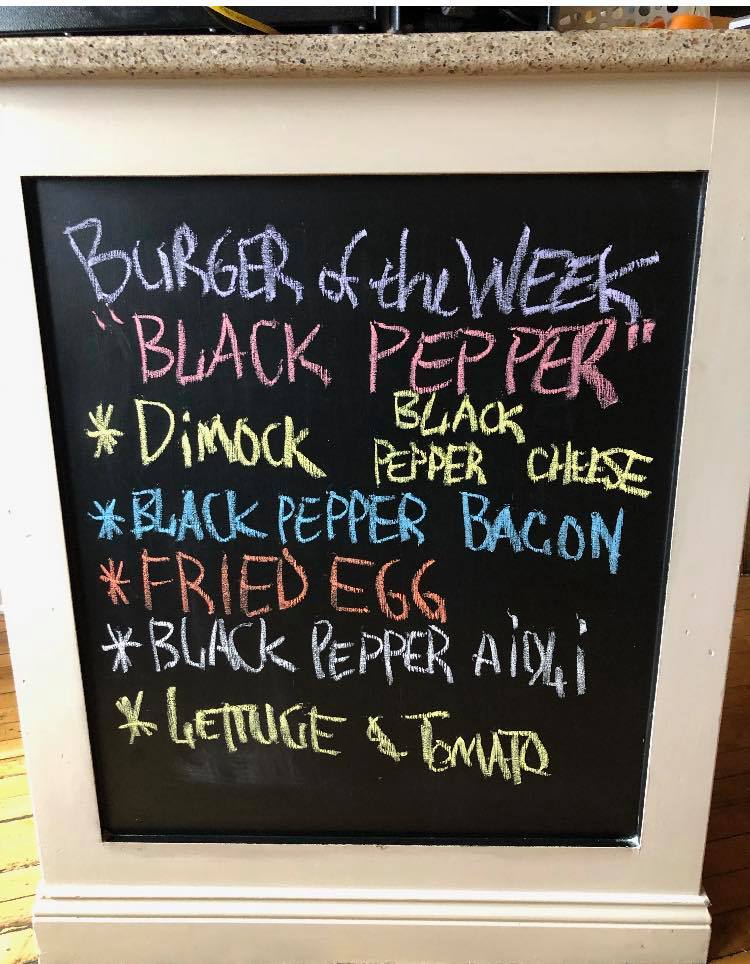 BURGER of the WEEK
"BLACK PEPPER"
* DiMOCK BLACK PEPPER CHEESE
* BLACK PEPPER BACON
* FRIED EGG
* BLACK PEPPER AiOLi
* LETTUCE & TOMATO